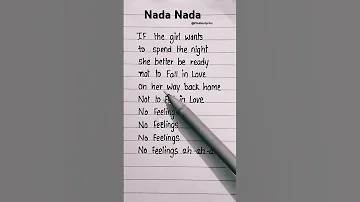 Nada Nada
IF the girl wants
to spend the night
she better be ready
not to Fall in Love
On her way back home
Not to in Love
No Feelings
No Feelings
No Feelings
No Feelings ah-ah-a